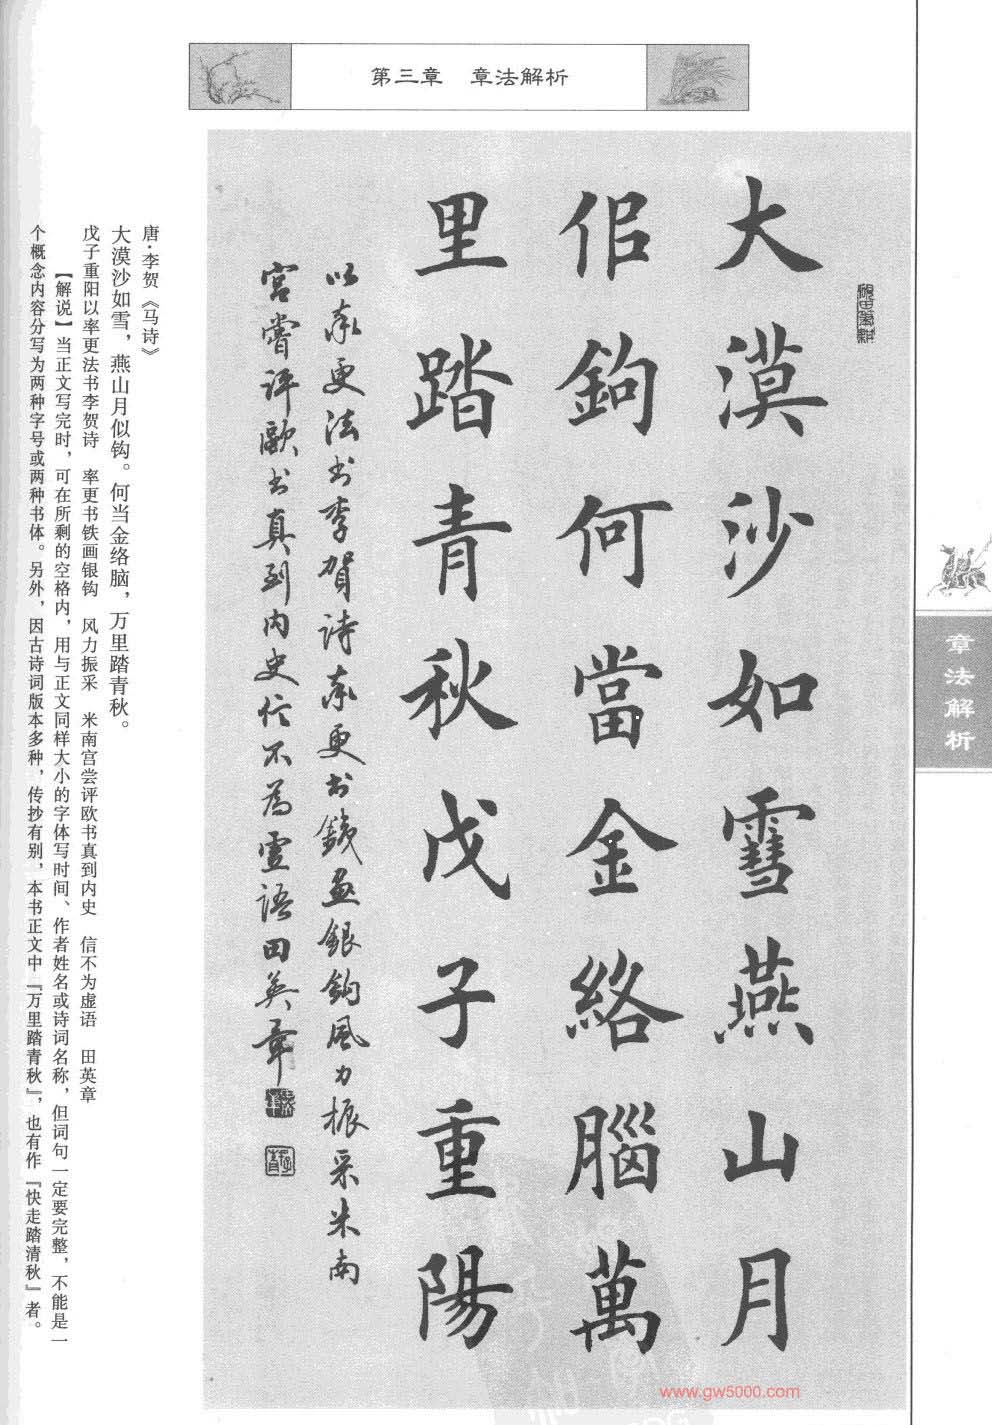 第三章　章法解析
大漠沙如雪燕山月
佀鉤何當金絡腦萬
里踏青秋戊子重陽
以率更法书李賀詩率更书鐵畫銀鉤風力振采米南
宮嘗评歐书真到内史信不為虚語田英章
唐·李贺《马诗》
大漠沙如雪，燕山月似钩。何当金络脑，万里踏青秋。
戊子重阳以率更法书李贺诗　率更书铁画银钩　风力振采　米南宫尝评欧书真到内史　信不为虚语　田英章
【解说】当正文写完时，可在所剩的空格内，用与正文同样大小的字体写时间、作者姓名或诗词名称，但词句一定要完整，不能是一
个概念内容分写为两种字号或两种书体。另外，因古诗词版本多种，传抄有别，本书正文中『万里踏青秋』，也有作『快走踏清秋』者。
章法解析
www.gw5000.com